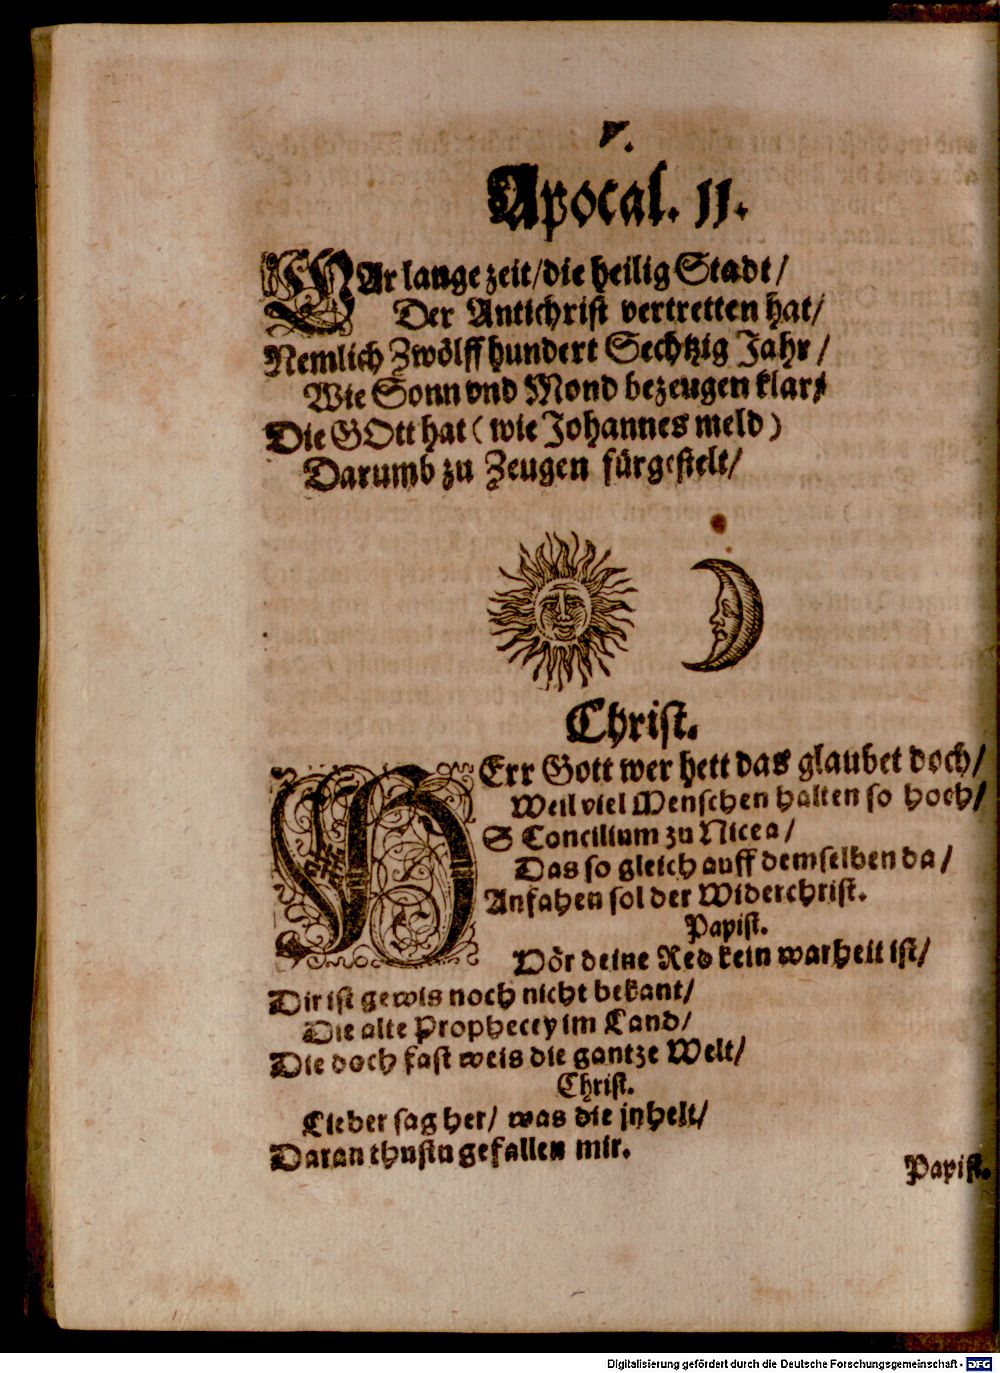 V.
Apocal. 11.
GAr lange zeit/die heilig Stadt/
Der Antichrist vertretten hat/
Nemlich Zwölff hundert Sechtzig Jahr/
Wie Sonn vnd Mond bezeugen klar/
Die GOtt hat (wie Johannes meld)
Darumb zu Zeugen fürgestelt/
Christ.
HErr Gott wer hett das glaubet doch/
Weil viel Menschen halten so hoch/
S Concilium zu Nicea/
Das so gleich auff demselben da/
Anfahen sol der Widerchrist.
Papist.
Hör deine Red kein warheit ist/
Dir ist gewis noch nicht bekant/
Die alte Prophecey im Land/
Die doch fast weis die gantze Welt/
Christ.
Lieber sag her/ was die jnhelt/
Daran thustu gefallen mir.
Papist.
Digitalisierung gefördert durch die Deutsche Forschungsgemeinschaft - DFG